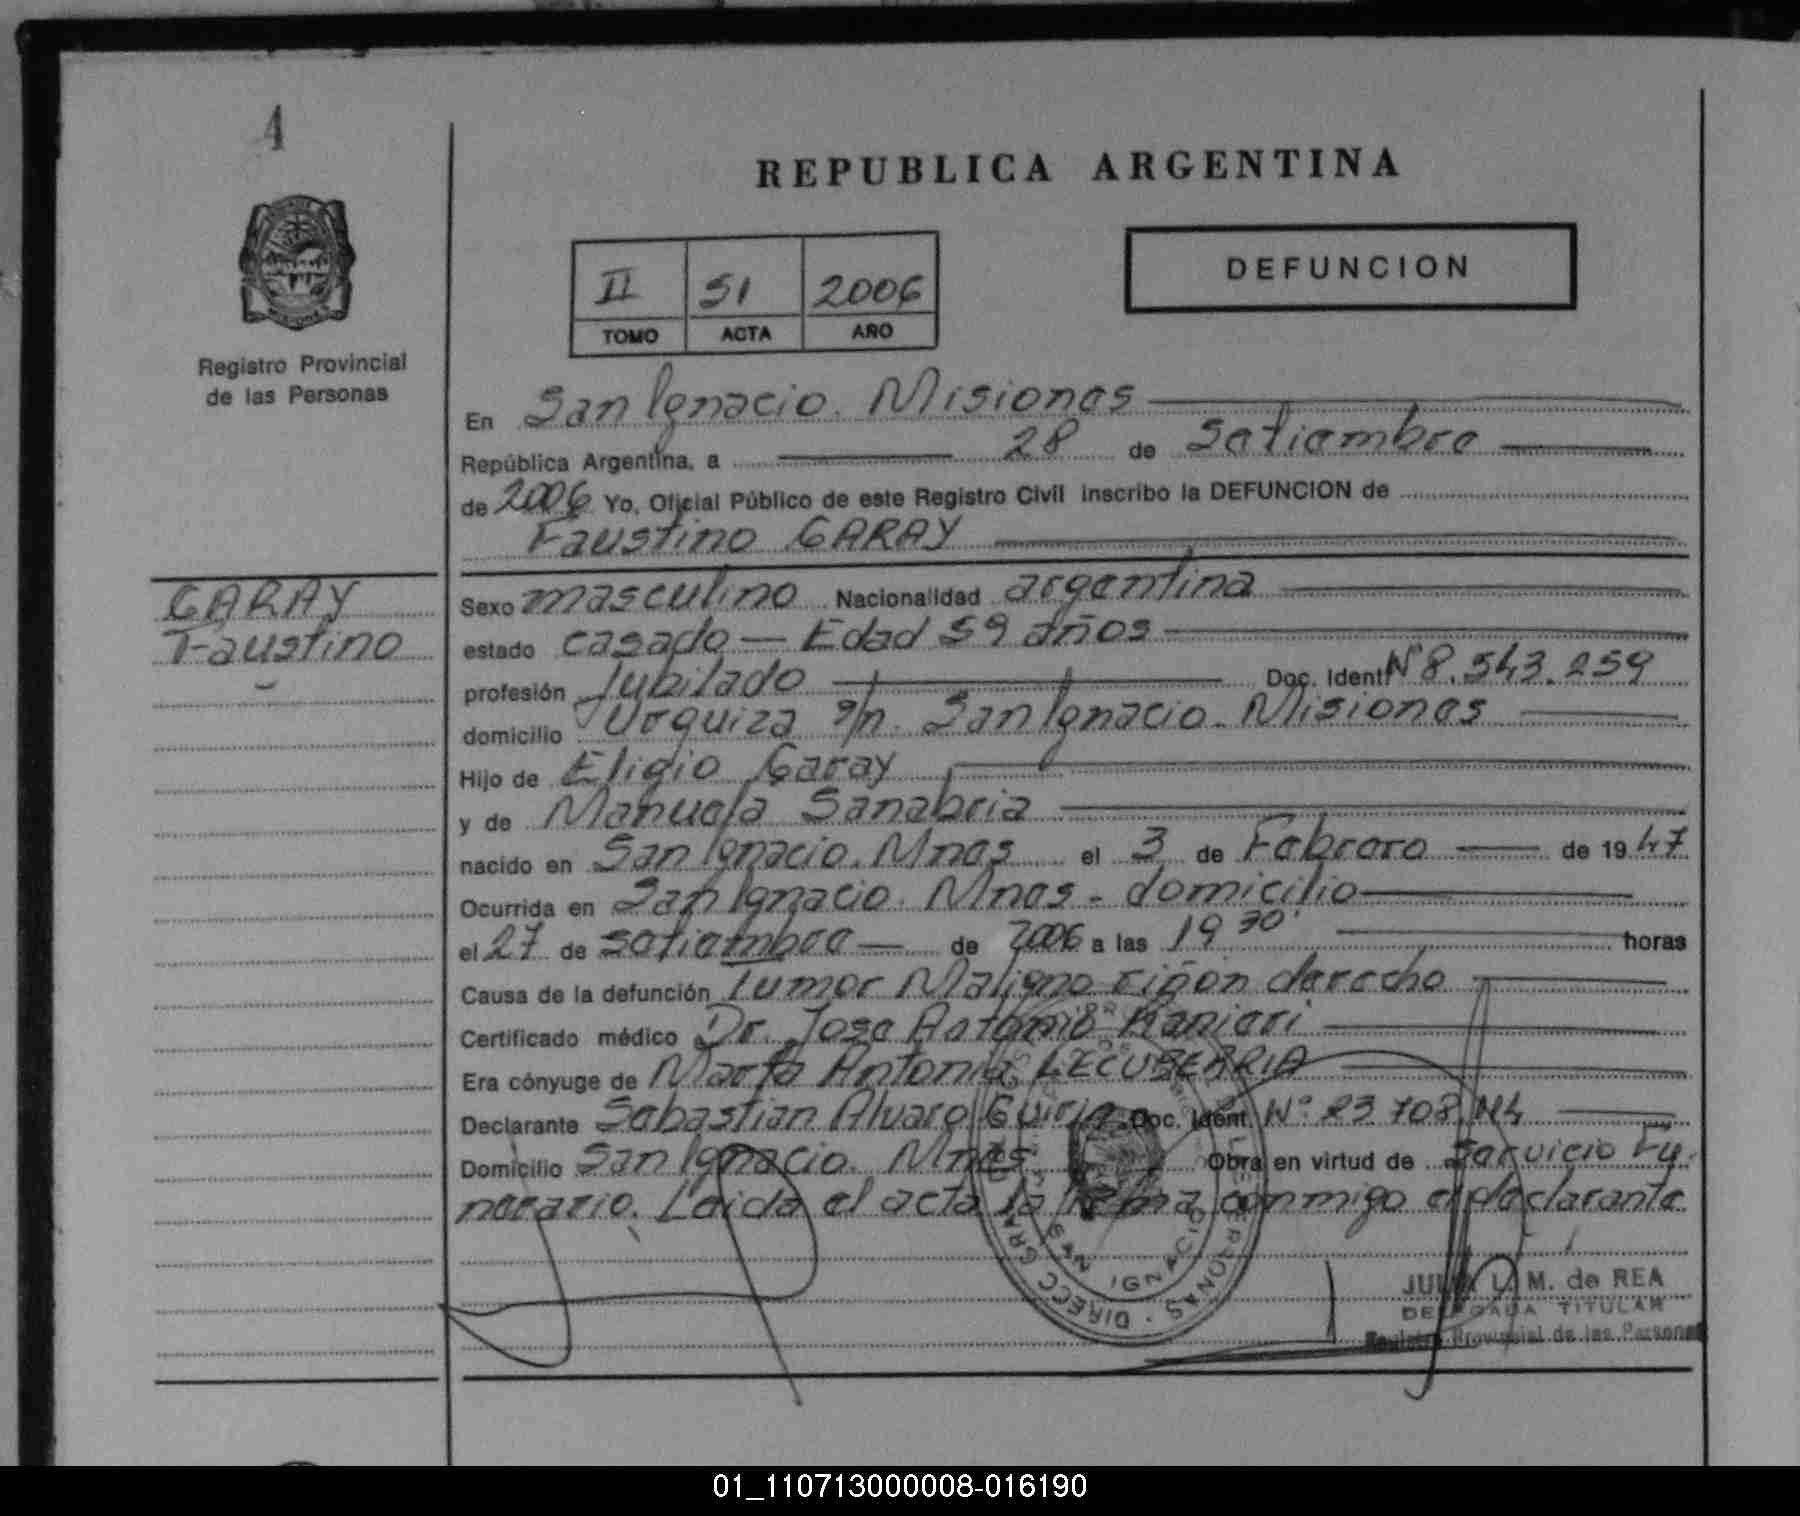 1
REPUBLICA ARGENTINA
DEFUNCION
II 51 2006
TOMO ACTA AÑO
Registro Provincial
de las Personas
En San Ignacio. Misiones
República Argentina, a 28 de Setiembre
de 2006 Yo, Oficial Público de este Registro Civil inscribo la DEFUNCION de
Faustino GARAY
GARAY
Faustino
Sexo masculino Nacionalidad argentina
estado casado — Edad 59 años
profesión Jubilado Doc. Ident. Nº 8.543.259
domicilio Urquiza s/n. San Ignacio. Misiones
Hijo de Eligio Garay
y de Manuela Sanabria
nacido en San Ignacio. Mnes el 3 de Febrero de 1947
Ocurrida en San Ignacio. Mnes - domicilio
el 27 de setiembre de 2006 a las 19 30' horas
Causa de la defunción Tumor Maligno riñon derecho
Certificado médico Dr. Jose Antonio
Era cónyuge de Marta Antonia LECUBERRIA
Declarante Sebastian Alvaro Doc. Ident. Nº 23.708
Domicilio San Ignacio. Mnes. Obra en virtud de Servicio Fu
nerario. Leida el acta la firma conmigo el declarante
SAN IGNACIO
JULIA L. M. de REA
DELEGADA TITULAR
Registro Provincial de las Personas
01_110713000008-016190